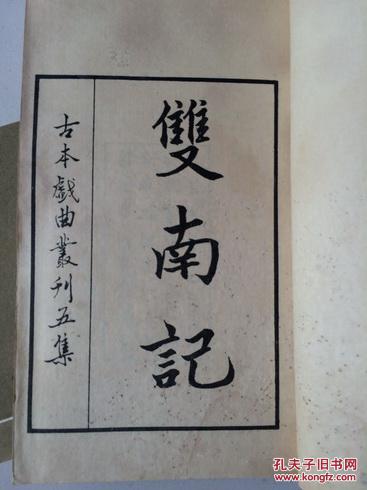 雙南記
古本戲曲叢刊五集
孔夫子旧书网